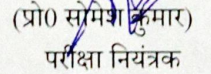 (प्रो0 सोमेश कुमार)
परीक्षा नियंत्रक